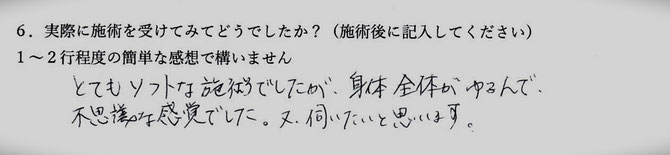 6．実際に施術を受けてみてどうでしたか？（施術後に記入してください）
1～2行程度の簡単な感想で構いません
とてもソフトな施術でしたが、身体全体がゆるんで、
不思議な感覚でした。又、伺いたいと思います。